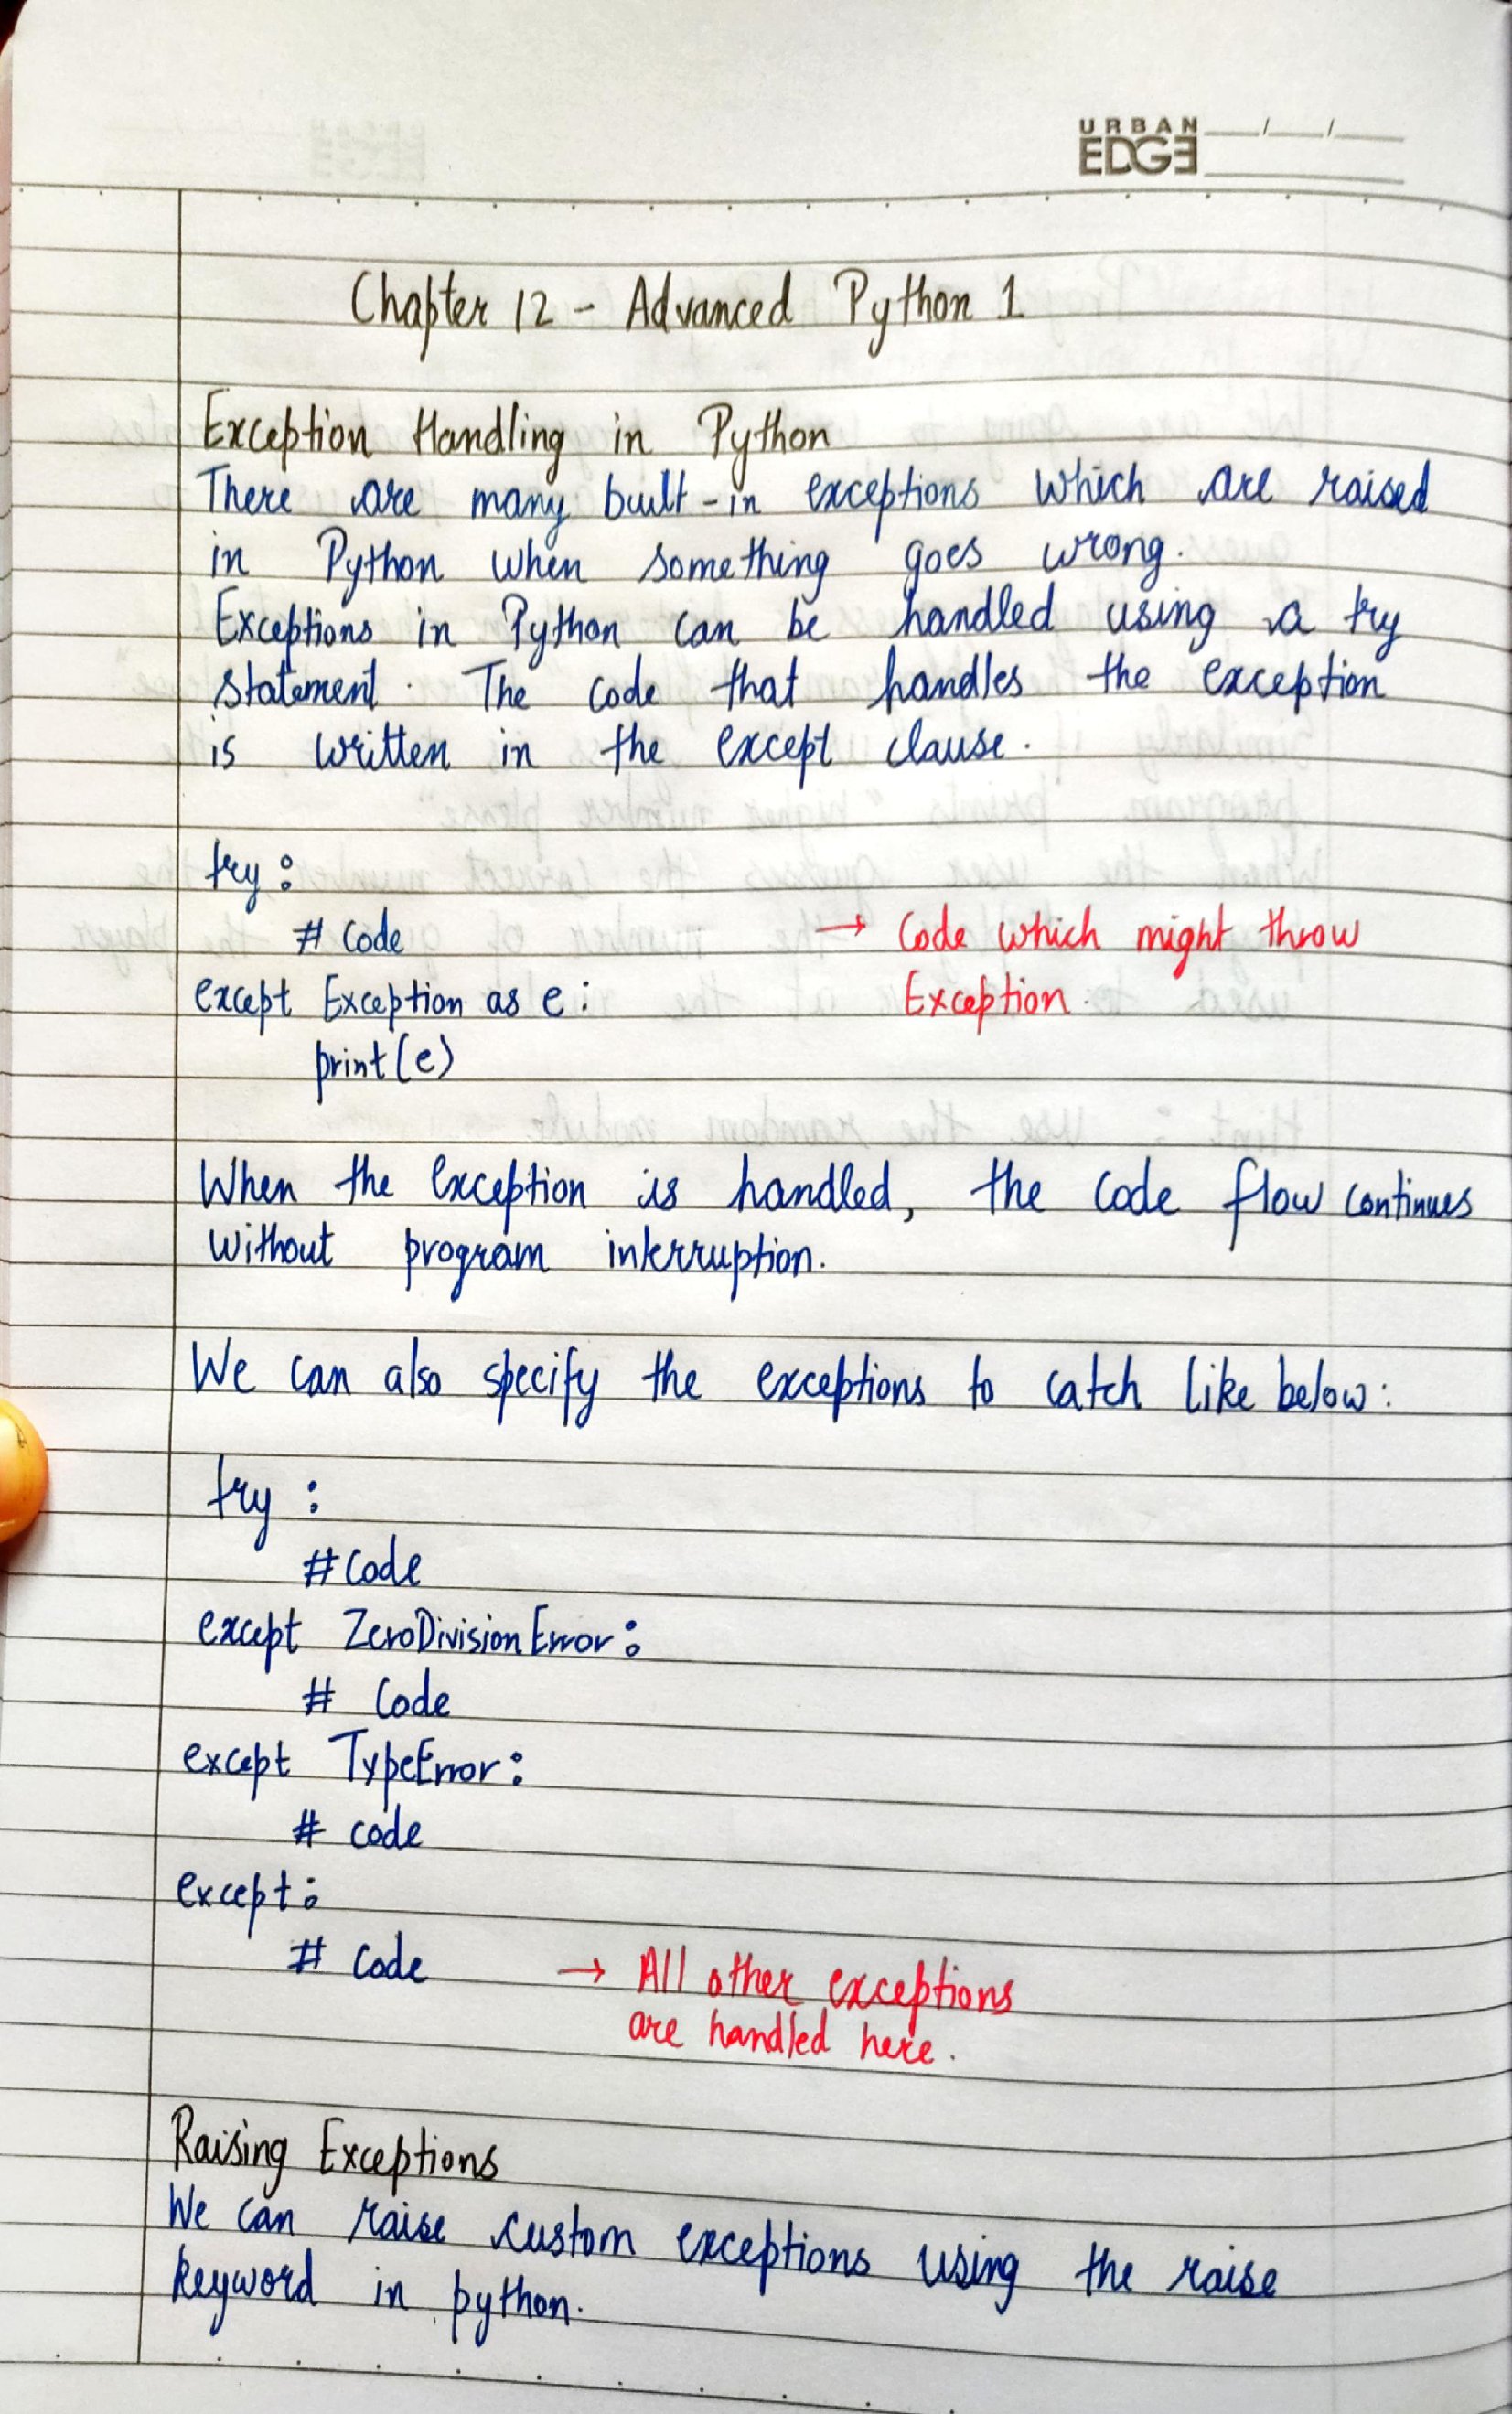 URBAN
EDGE
Chapter 12 - Advanced Python 1
Exception Handling in Python
There are many built-in exceptions which are raised
in Python when something goes wrong.
Exceptions in Python can be handled using a try
statement. The code that handles the exception
is written in the except clause.
try:
# Code → Code which might throw
except Exception as e: Exception.
print(e)
When the exception is handled, the code flow continues
without program interruption.
We can also specify the exceptions to catch like below:
try :
# Code
except ZeroDivisionError:
# Code
except TypeError:
# code
except:
# Code → All other exceptions
are handled here.
Raising Exceptions
We can raise custom exceptions using the raise
keyword in python.